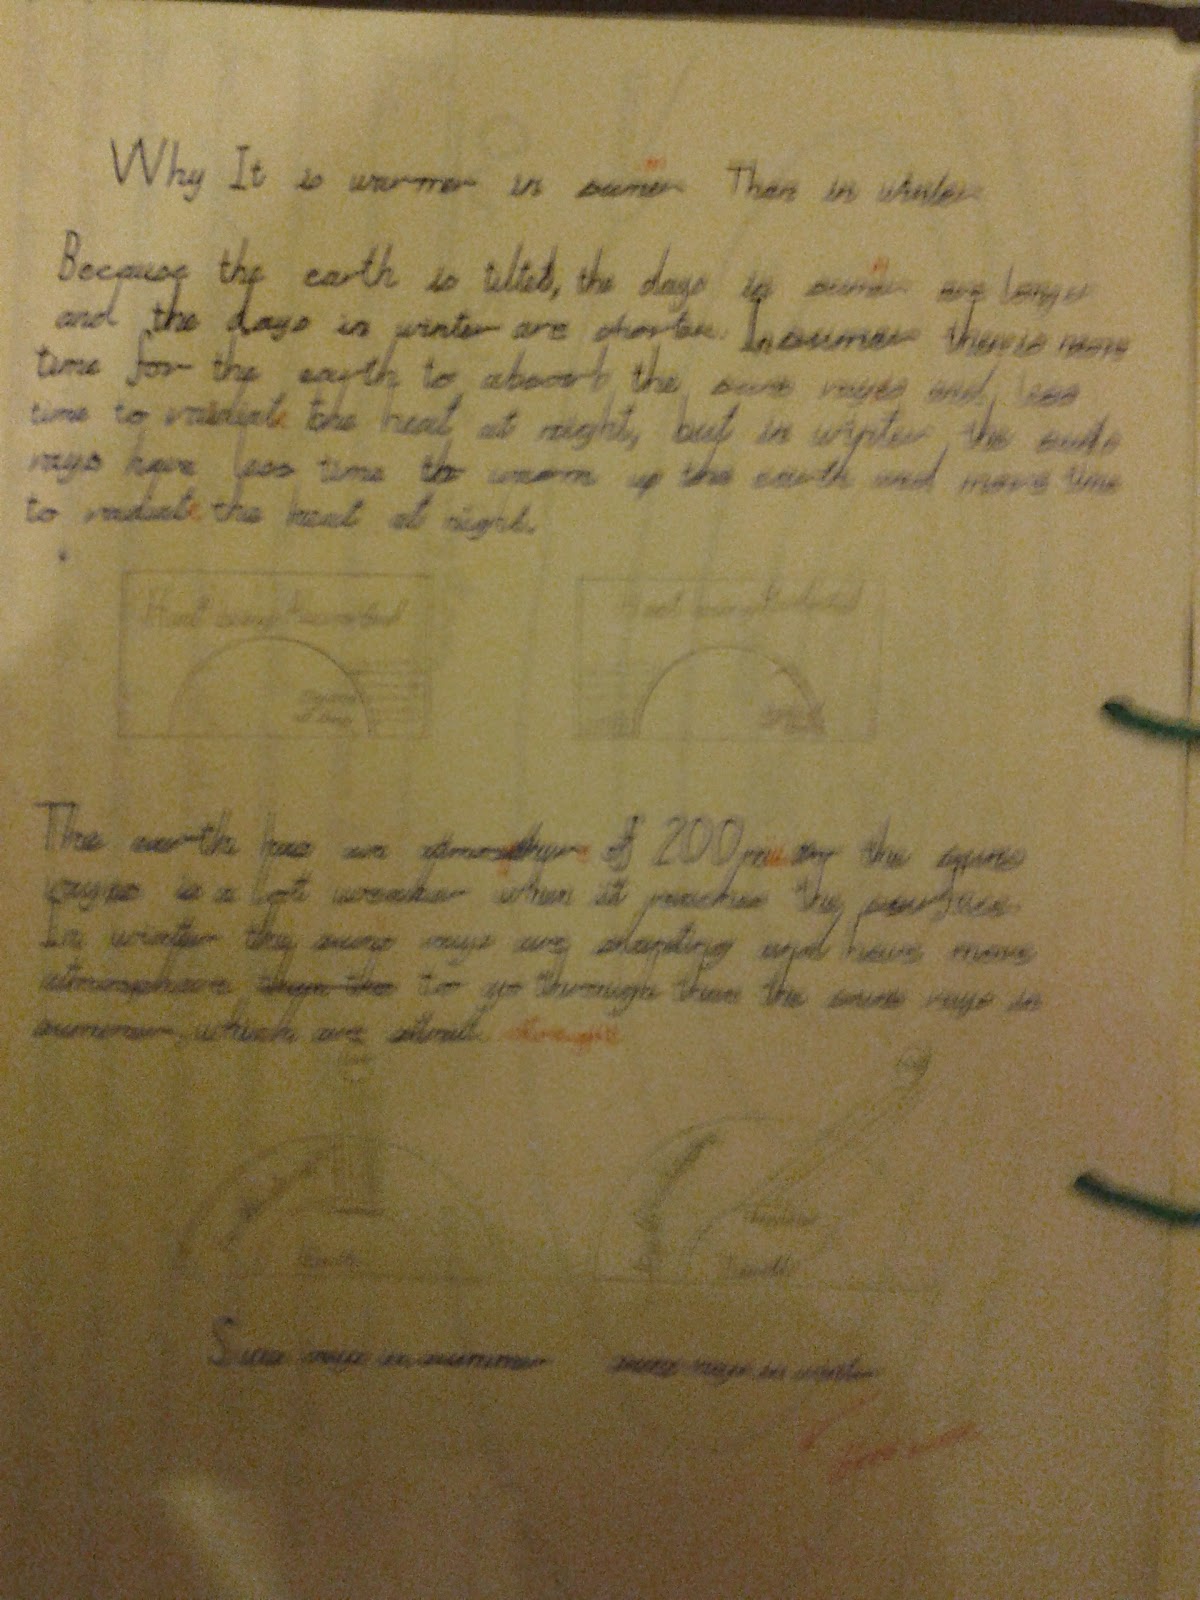 Why It is warmer in sumer Than in winter
Because the earth is tilted, the days in sumer are longer
and the days in winter are shorter. In sumer there is more
time for the earth to absorb the suns rayes and less
time to radiate the heat at night, but in winter the suns
rays have less time to warm up the earth and more time
to radiate the heat at night.
Heat being
Heat being
The earth has an of 200 the suns
is a lot weaker when it reaches the surface
In winter the suns rays are slanting and have more
atmosphere to go through than the suns rays in
summer, which are
Earth
Suns rays in summer
suns rays in winter